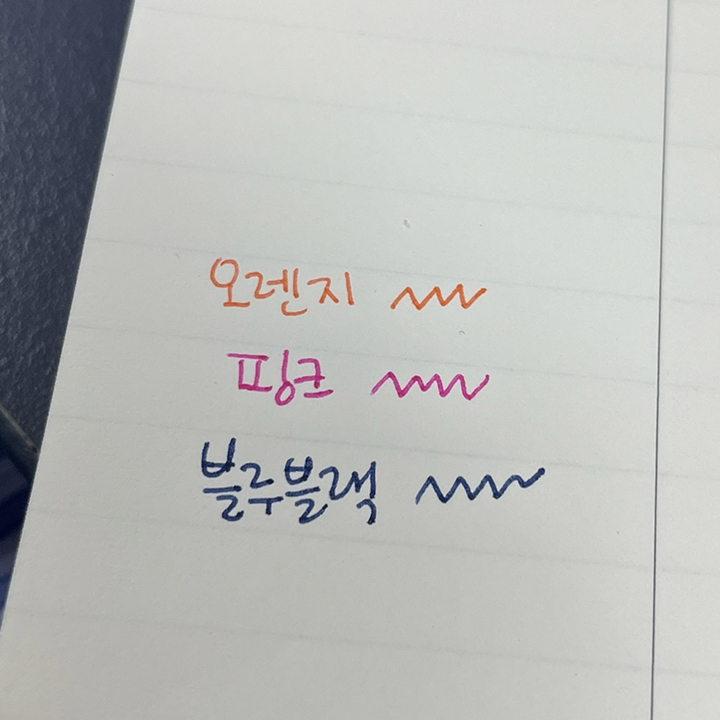 오렌지
핑크
블루블랙